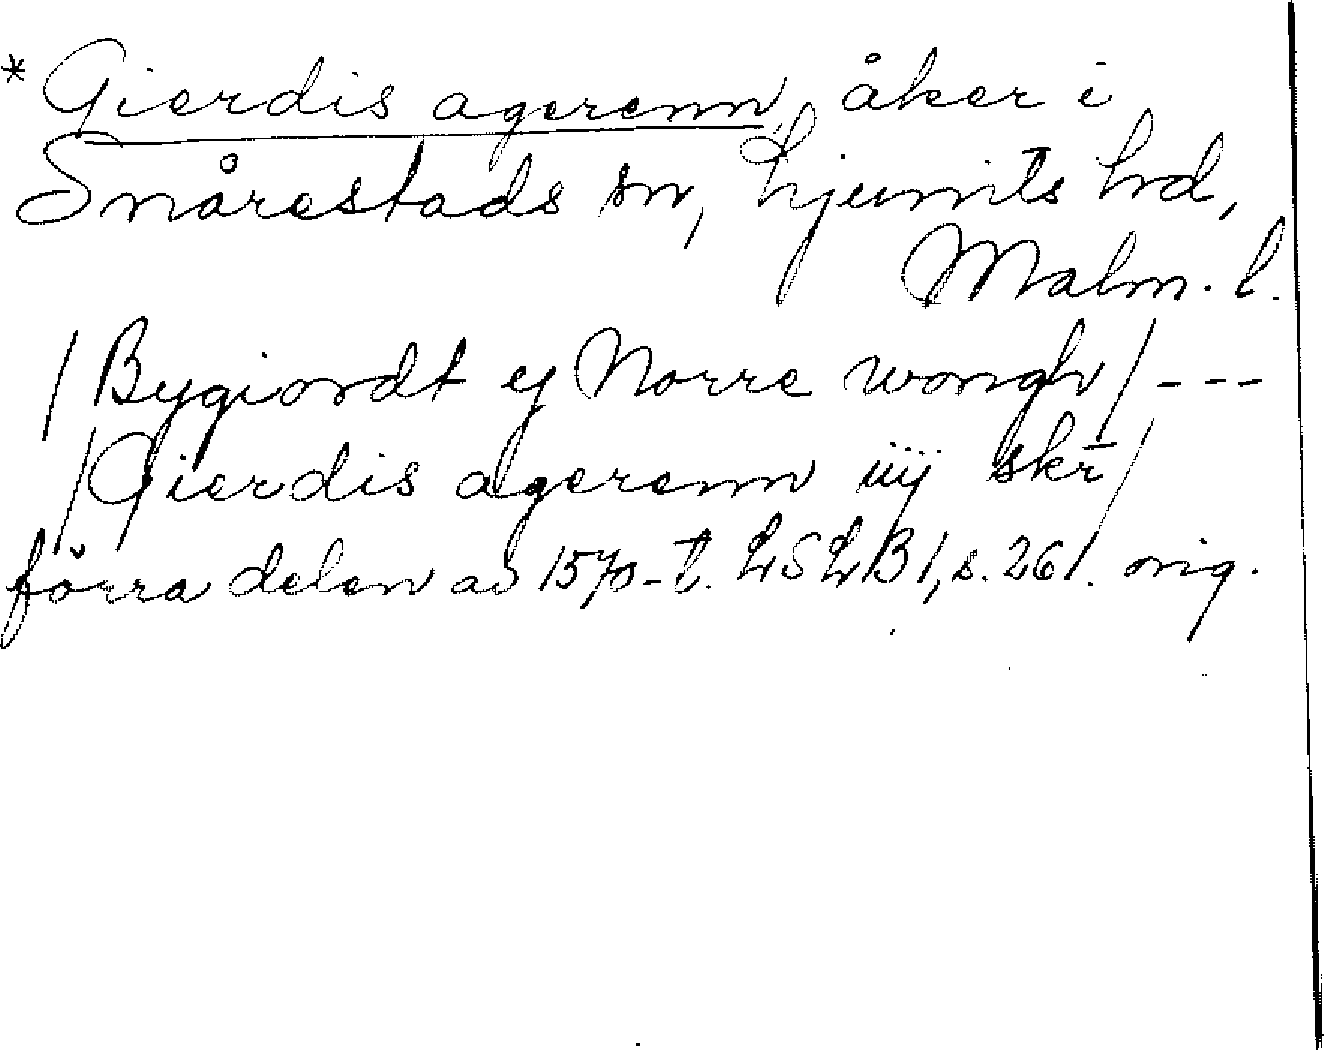 * Gierdis agerenn, åker i
Snårestads sn, Ljunits hrd,
Malm. l.
/Bygiordt ej Norre wongh/---
/Gierdis agerenn iiij skr̄/
förra delen av 1570-t. LSLB 1, s. 261. orig.